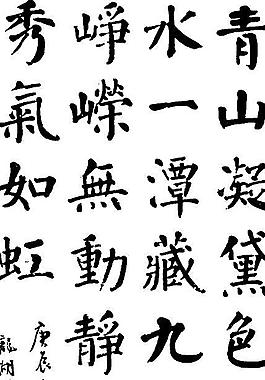 青山凝黛色
水一潭藏九
崢嶸無動靜
秀氣如虹
庚辰
龍湖